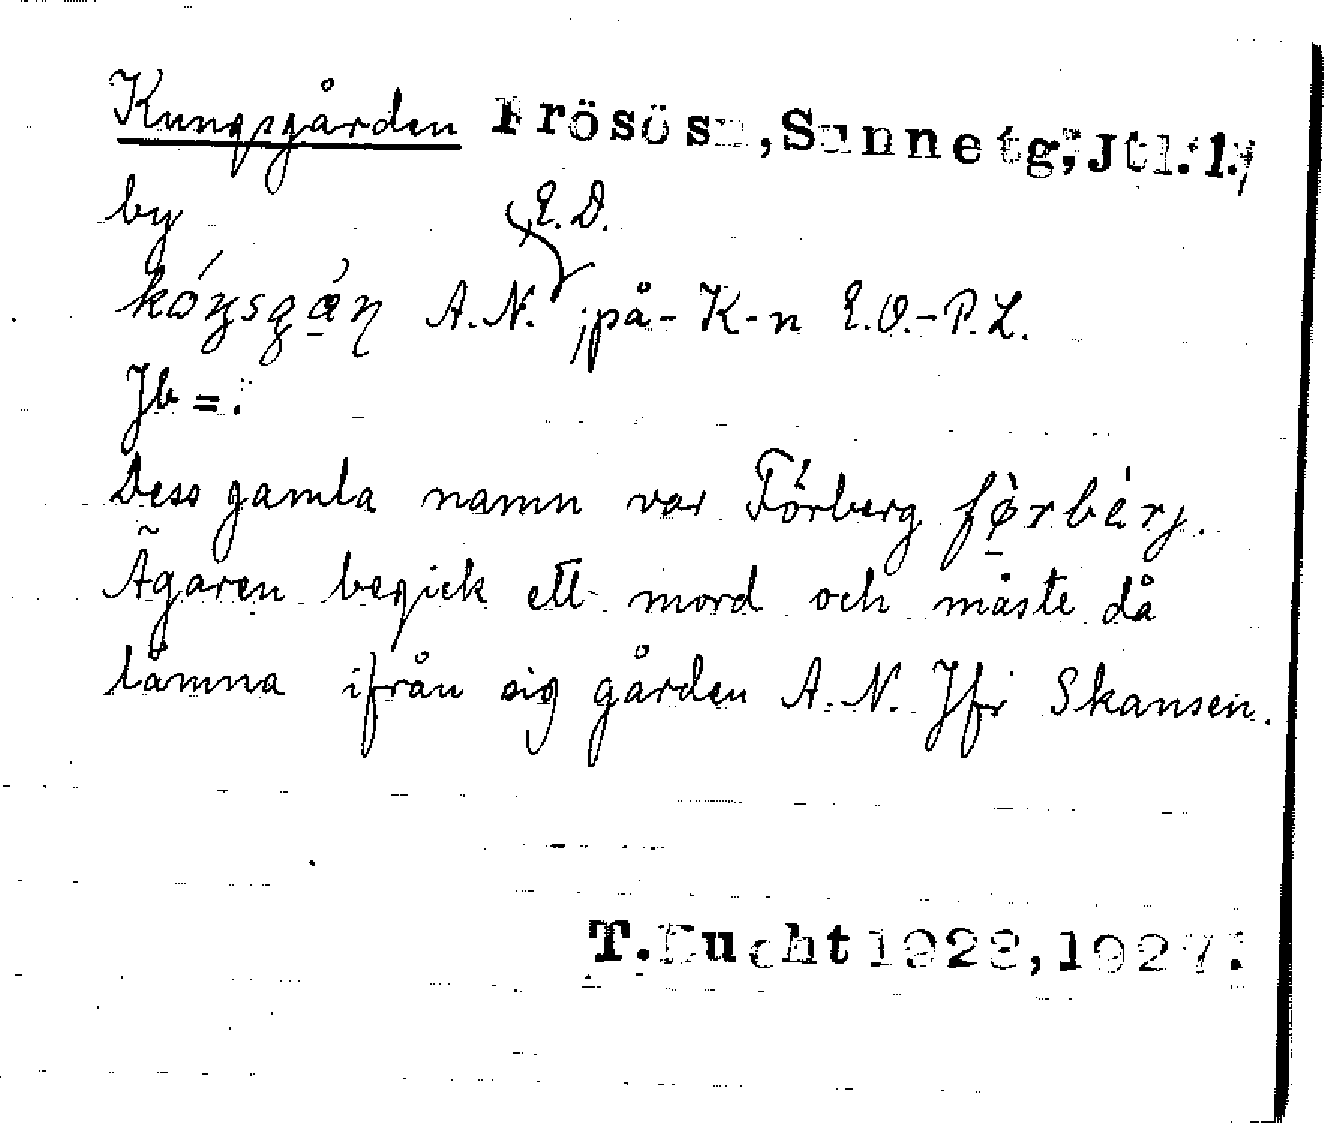 Kungsgården Frösös n, Sunne tg, Jtl. l.,
by E.D.
kóŋsgá̱ɳ A.N. ; på - K-n E.O.-P.L.
Jb = :
Dess gamla namn var Förberg fø̱̀rbèrj.
Ägaren begick ett mord och måste då
lämna ifrån sig gården A.N. Jfr Skansen.
T. Bucht 1928, 1927.